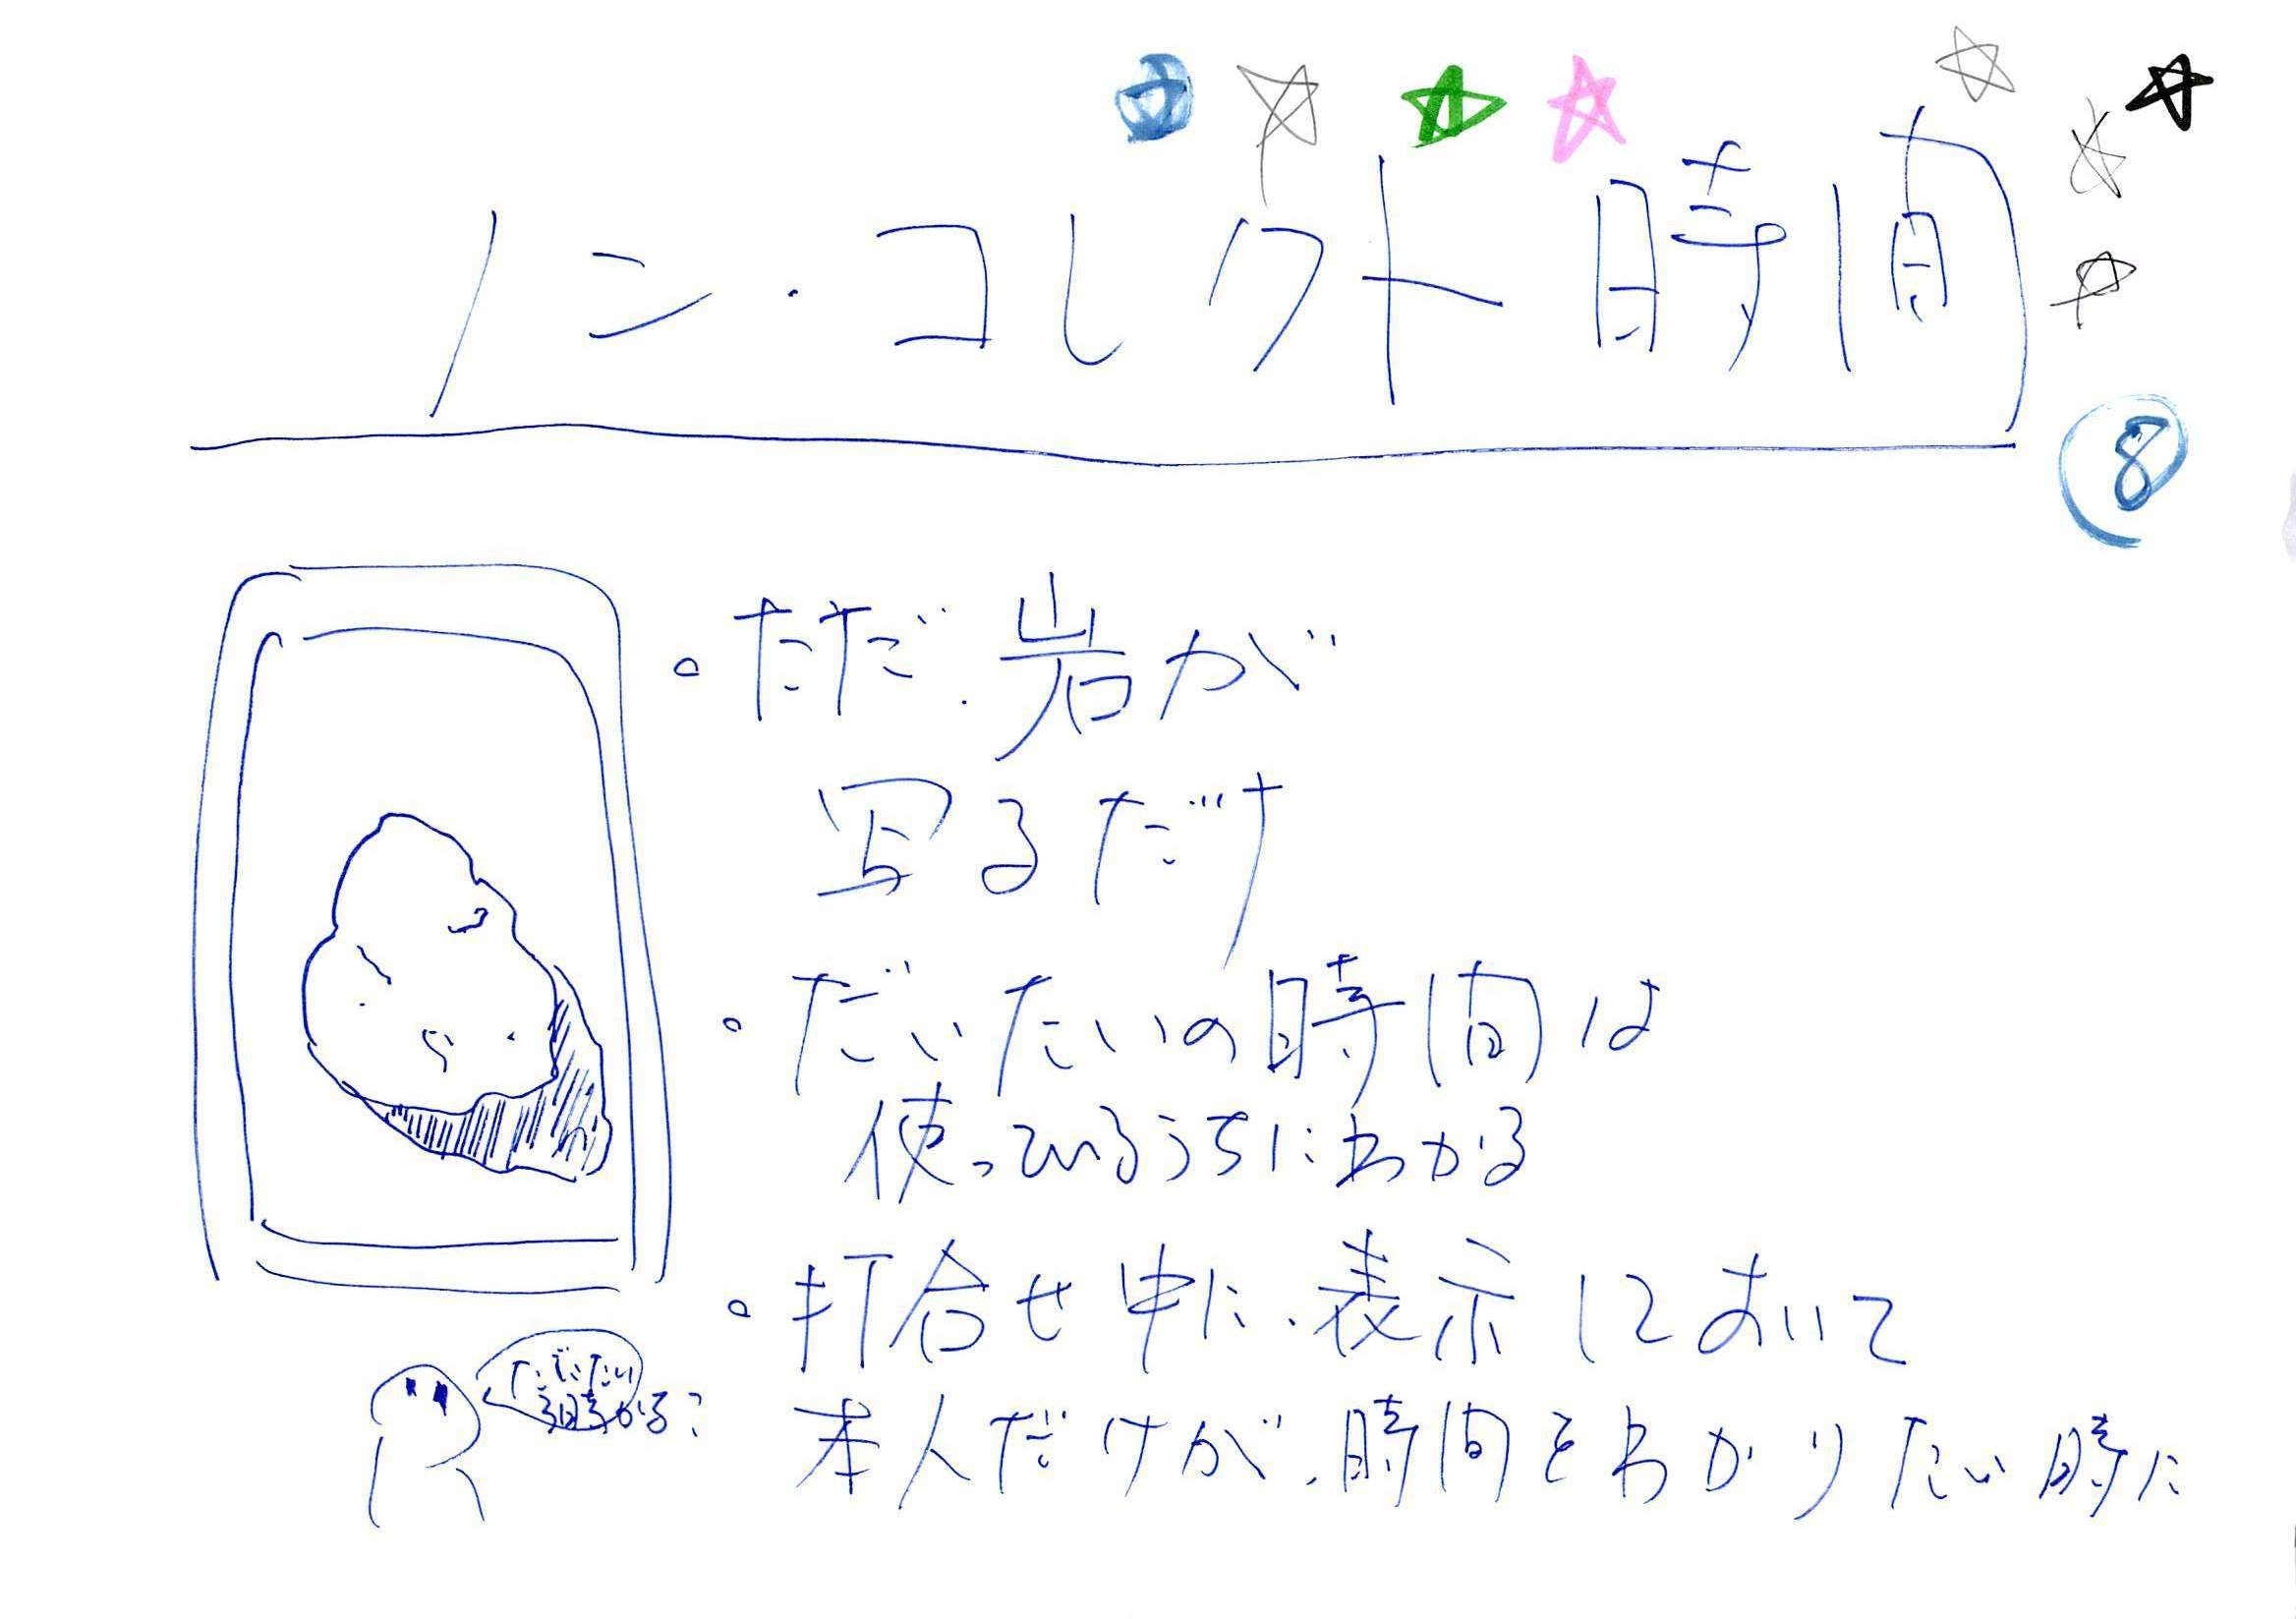 ノン・コレクト時間
8
。ただ、岩が
写るだけ
。だいたいの時間は
使っているうちにわかる
。打合せ中に、表示しておいて
本人だけが、時間をわかりたい時に
だいたい